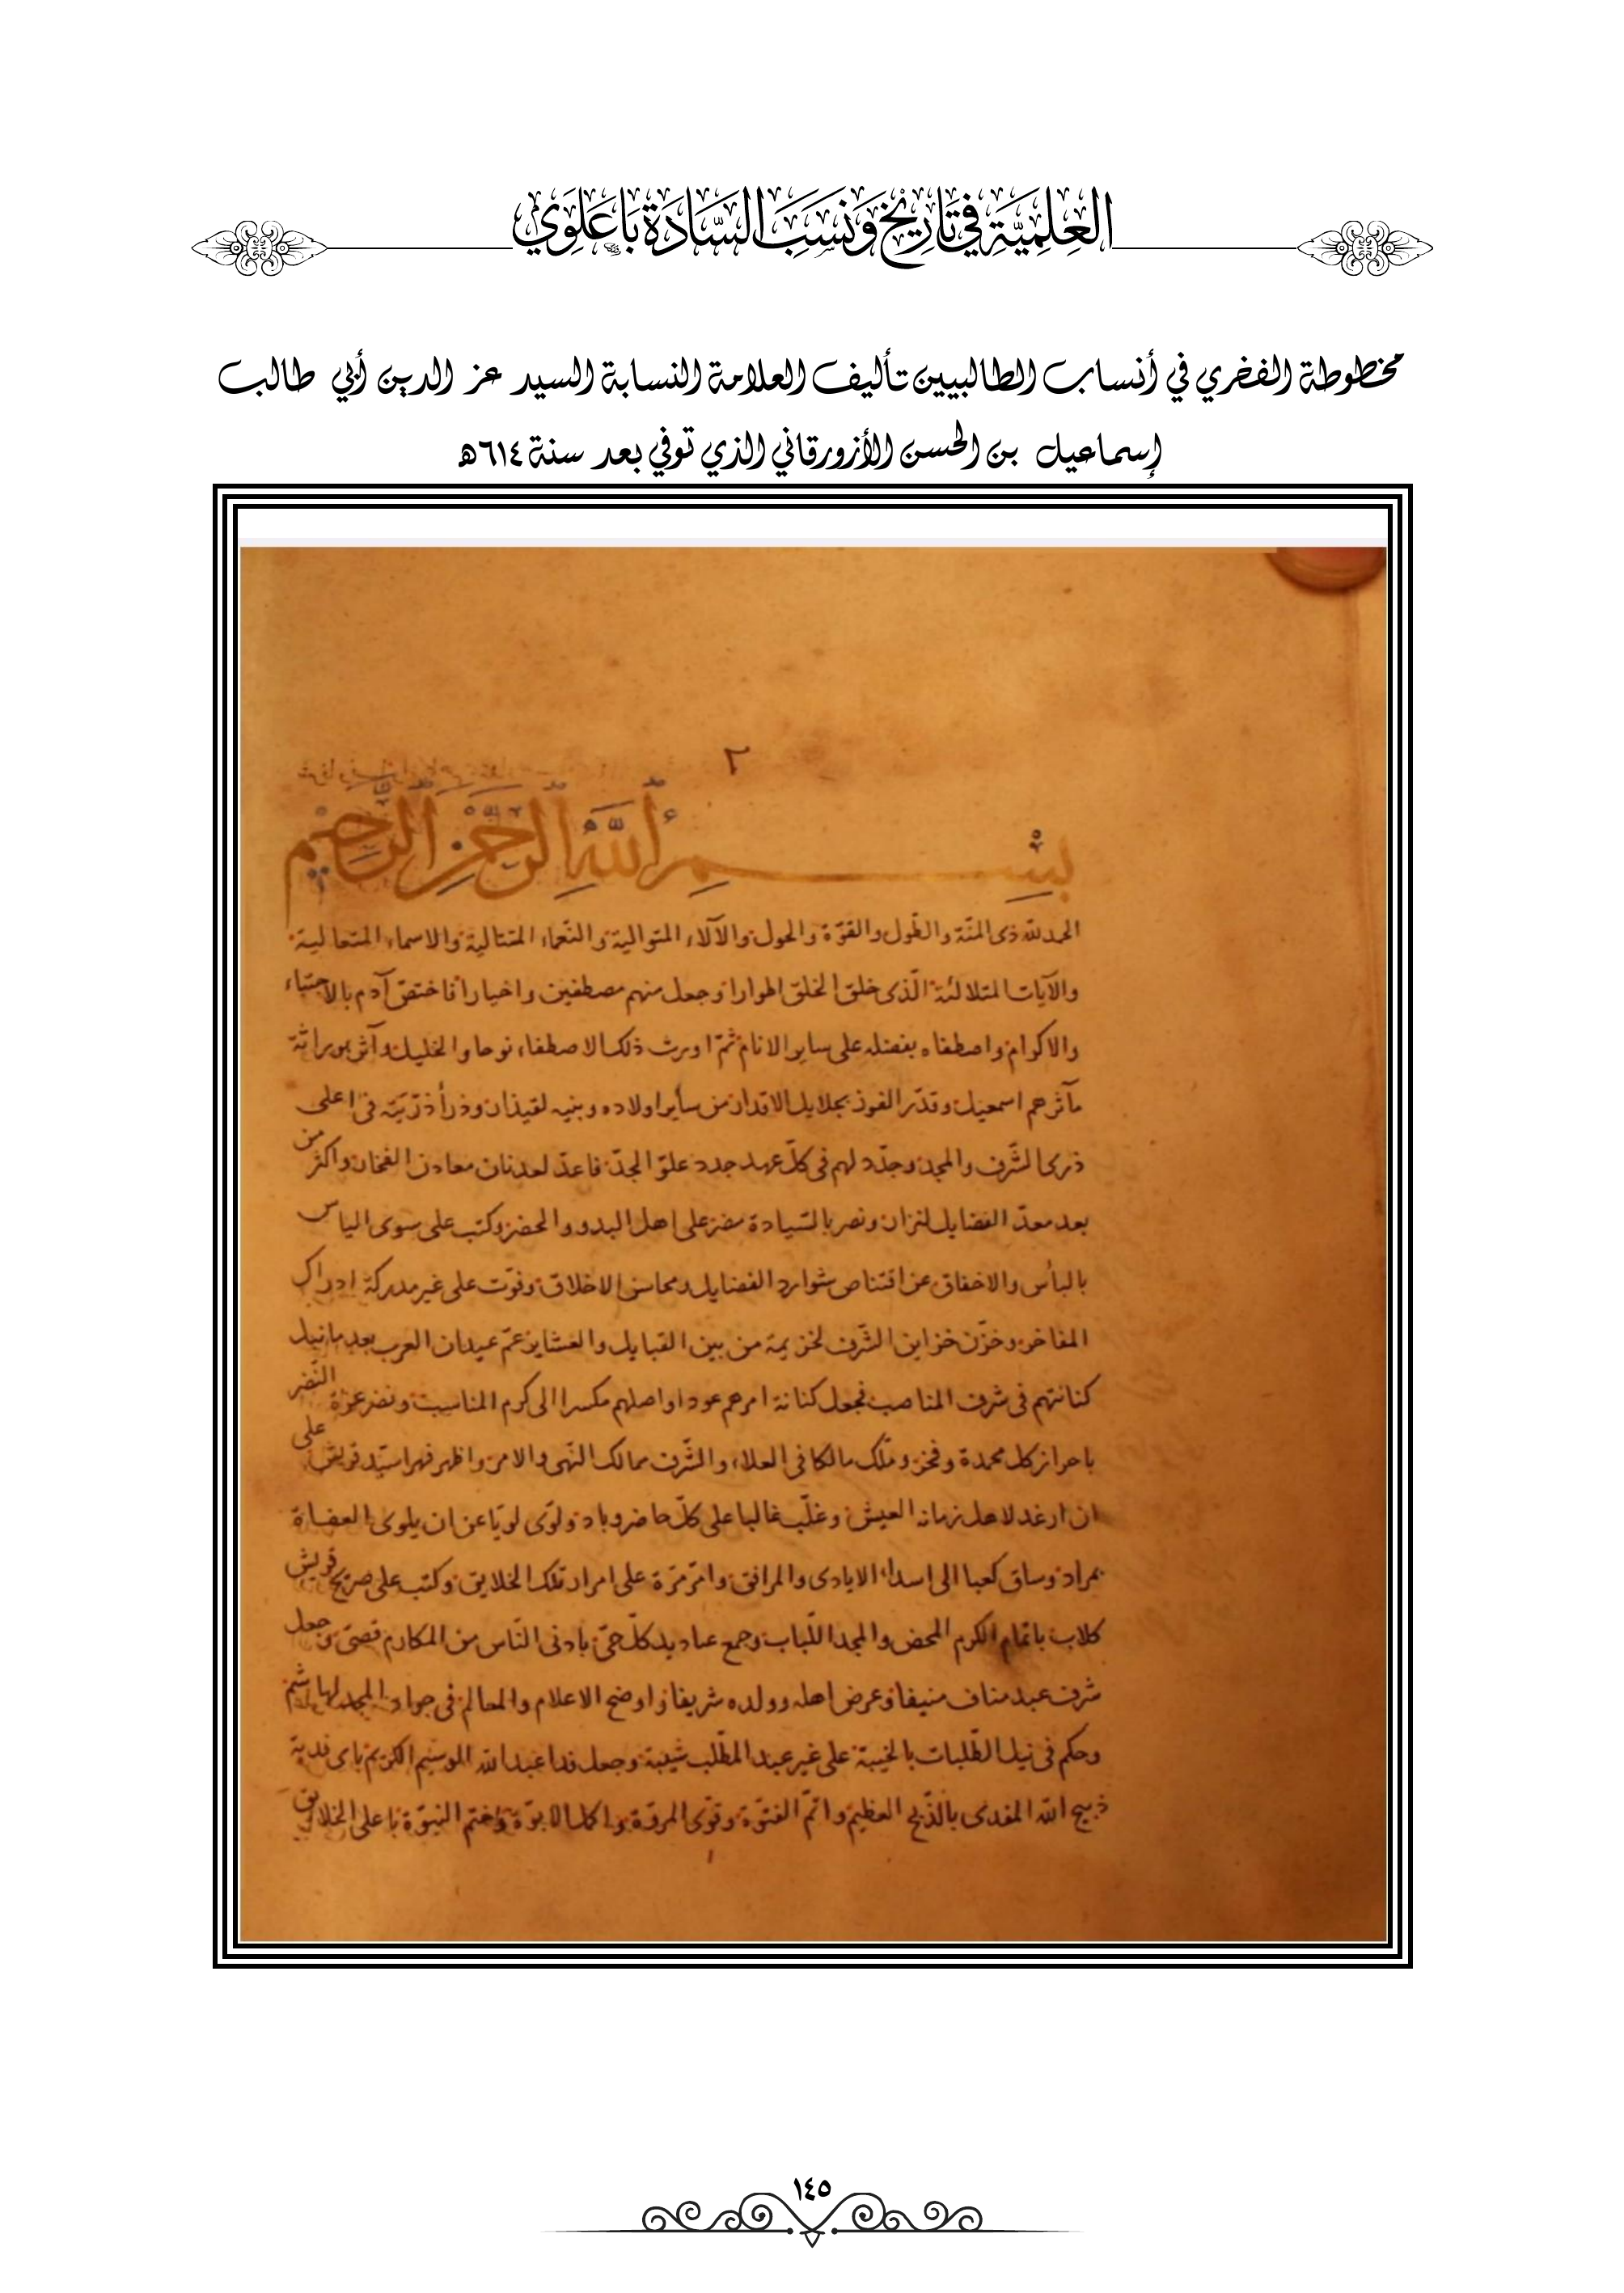 العِلْمِيَّةِ فِي تَارِيْخِ وَنَسَبِ السَّادَةِ بَاعَلَوِي
مخطوطة الفخري في أنساب الطالبيين تأليف العلامة النسابة السيد عز الدين أبي طالب
إسماعيل بن الحسن الأزورقاني الذي توفي بعد سنة ٦١٤ھ
٢
بسم الله الرحمن الرحيم
الحمد لله ذى المنّة والطّول والقوّة والحول والآلاء المتوالية والنّعماء المتتالية والاسماء المتعالية
والآيات المتلالئة الّذى خلق الخلق اطوارا وجعل منهم مصطفين واخيارا فاختصّ آدم بالاجتباء
والاكرام واصطفاه بفضله على ساير الانام ثمّ اورث ذلك الاصطفاء نوحا والخليل وآثر بوراثة
مآثرهم اسمعيل وقدّر الفوز بجلايل الاقدار من ساير اولاده وبنيه لقيذار وذرأ ذرّيّته فى اعلى
ذرى الشّرف والمجد وجدّد لهم فى كلّ عهد جدد علوّ الجدّ فاعدّ لعدنان معادن الفخار واكثر من
بعد معدّ الفضايل لنزار ونصر بالسّيادة مضر على اهل البدو والحضر وكتب على سوى الياس
بالبأس والاخفاق عن اقتناص شوارد الفضايل ومحاسن الاخلاق وفوّت على غير مدركة ادراك
المفاخر وخزّن خزاين الشّرف لخزيمة من بين القبايل والعشاير عمّ عيدان العرب بعد ما نيل
كنانتهم فى شرف المناصب فجعل كنانة امرهم عودا واصلهم مكسرا الى كرم المناسبت ونضر عزة النّضر
باحراز كل محمدة وفخر وملّك مالكا فى العلاء والشّرف ممالك النّهى والامر واظهر فهرا سيّد قريش على
ان ارغد لاهل زمانه العيش وغلّب غالبا على كلّ حاضر وباد ولوّى لويّا عن ان يلوى العفاة
بمراد وساق كعبا الى اسداء الايادى والمرافق وامرّ مرّة على امرار تلك الخلايق وكتب على صريح قريش
كلاب باتمام الكرم المحض والمجد اللّباب وجمع عباديد كلّ حىّ بادنى النّاس من المكارم قصىّ وجعل
شرف عبد مناف منيفا وعرض اهله وولده شريفا واوضح الاعلام والمعالم فى جواد المجد لهاشم
وحكم فى نيل الطّلبات بالخيبة على غير عبد المطّلب شيبة وجعل فدا عبد الله الموسيم الكريم باى فدية
ذبيح الله المفدى بالذّبح العظيم واتمّ الفتوّة وقوّى المروّة واكمل الابوّة واختم النبوّة باعلى الخلايق
١٤٥